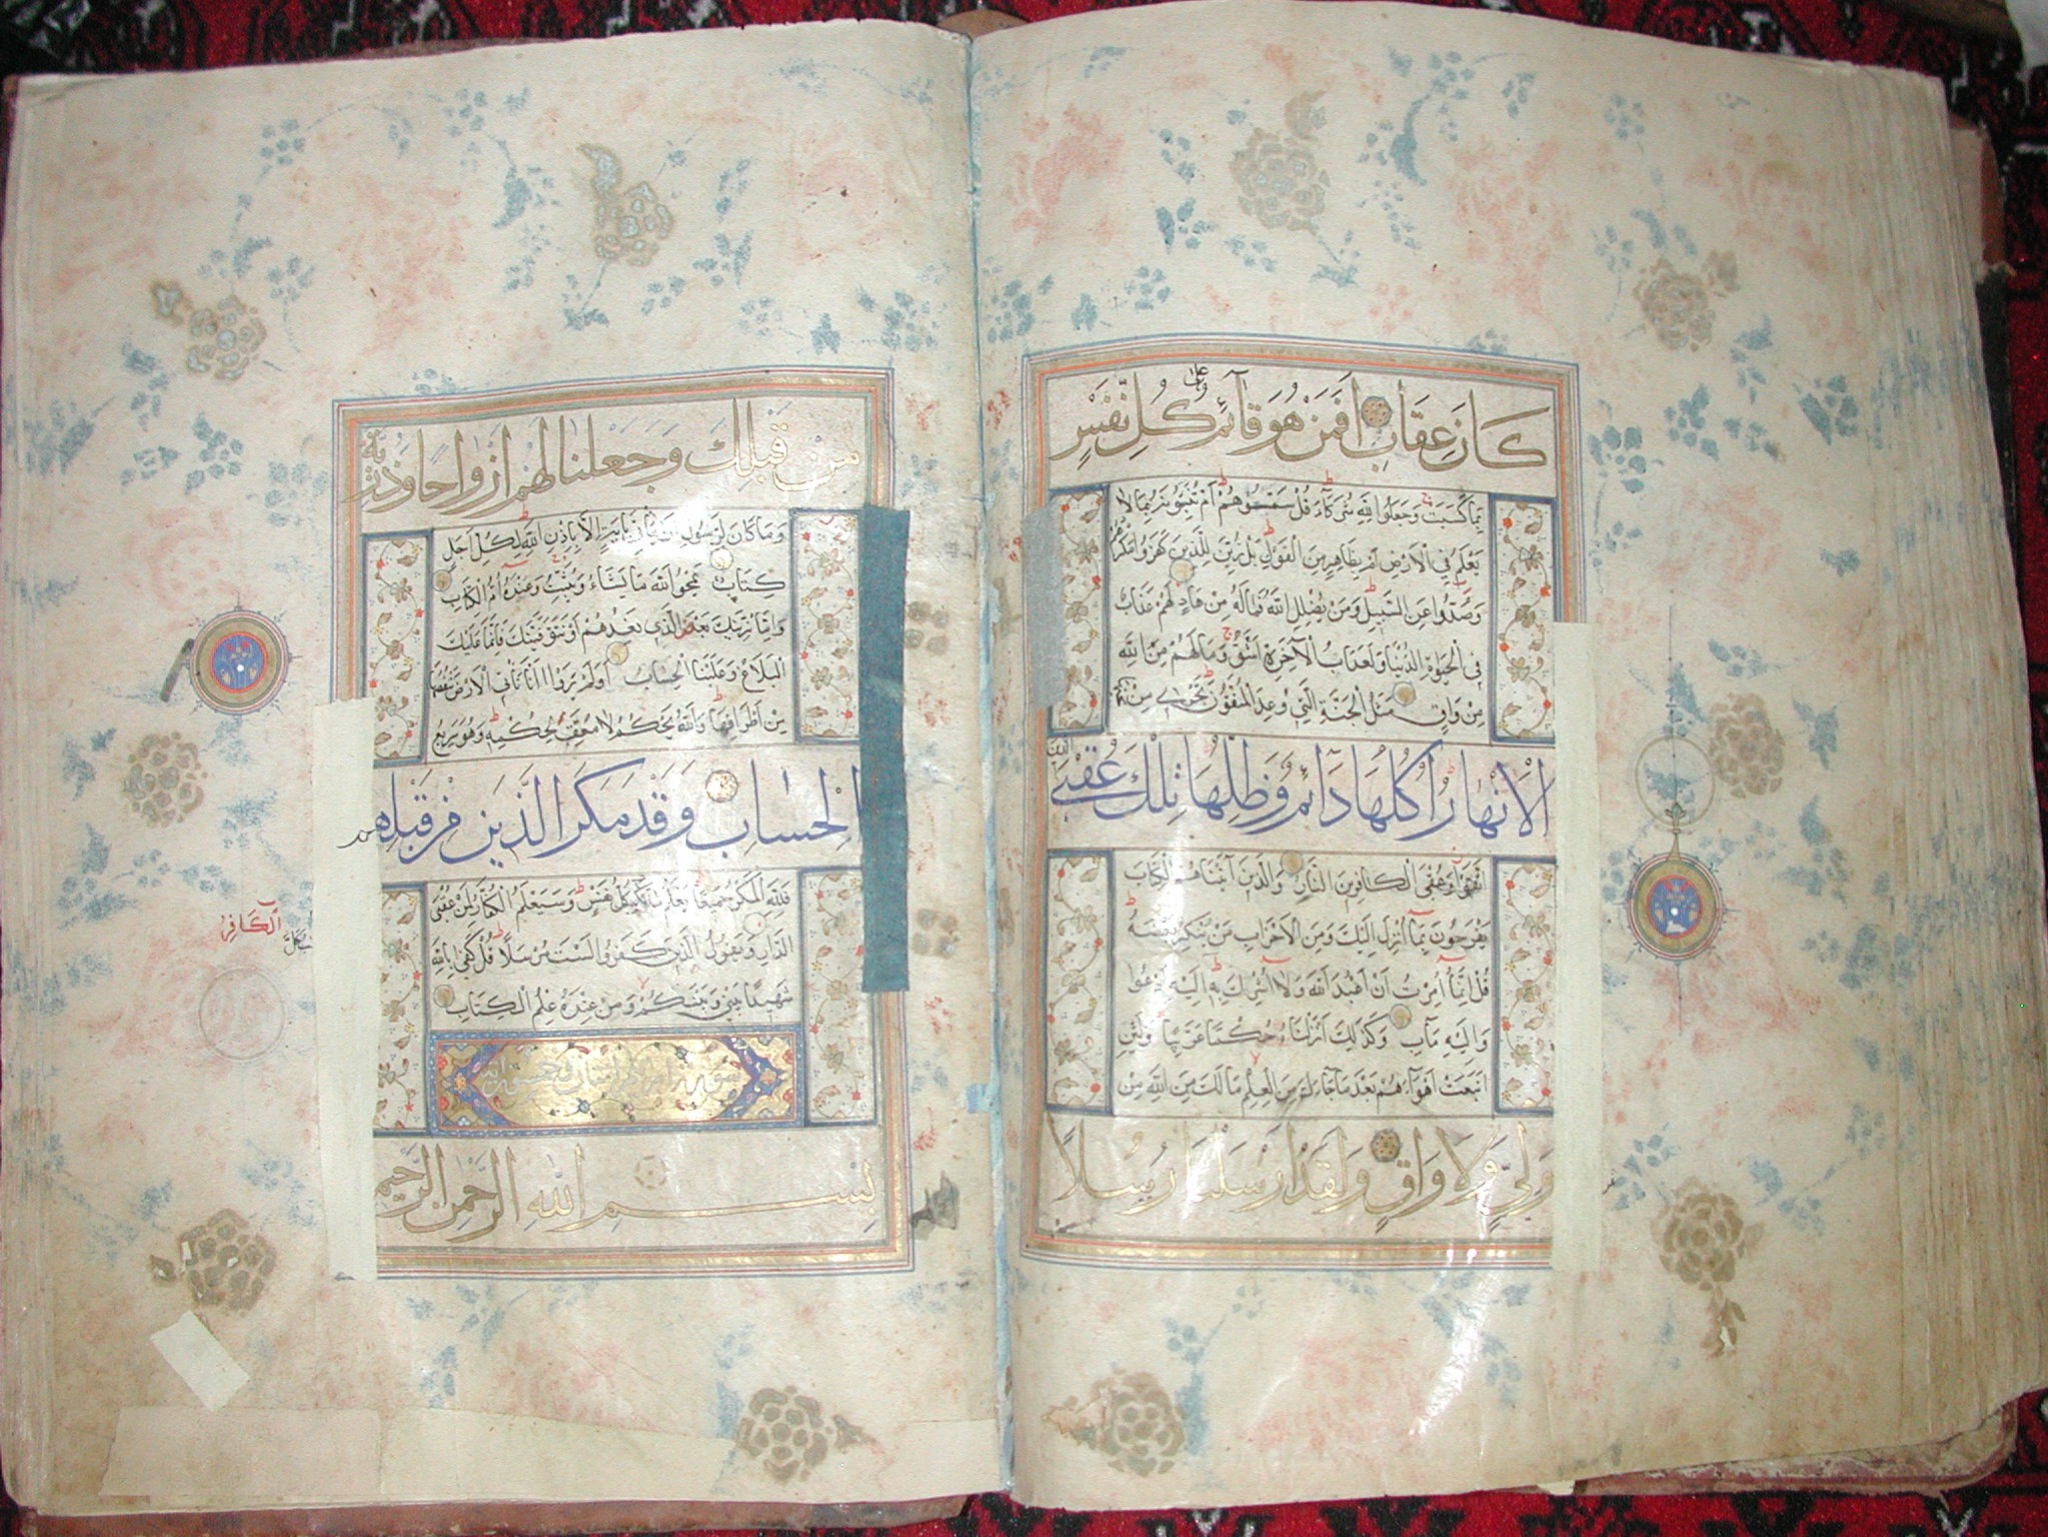 كَانَ عِقَابِ اَفَمَنْ هُوَ قَآئِمٌ عَلٰى كُلِّ نَفْسٍ
بِمَا كَسَبَتْ وَجَعَلُوا لِلّٰهِ شُرَكَآءَ قُلْ سَمُّوهُمْ اَمْ تُنَبِّئُونَهُ بِمَا لَا
يَعْلَمُ فِي الْاَرْضِ اَمْ بِظَاهِرٍ مِنَ الْقَوْلِ بَلْ زُيِّنَ لِلَّذِينَ كَفَرُوا مَكْرُهُمْ
وَصُدُّوا عَنِ السَّبِيلِ وَمَنْ يُضْلِلِ اللّٰهُ فَمَا لَهُ مِنْ هَادٍ لَهُمْ عَذَابٌ
فِي الْحَيٰوةِ الدُّنْيَا وَلَعَذَابُ الْاٰخِرَةِ اَشَقُّ وَمَا لَهُمْ مِنَ اللّٰهِ
مِنْ وَاقٍ مَثَلُ الْجَنَّةِ الَّتِي وُعِدَ الْمُتَّقُونَ تَجْرِي مِنْ تَحْتِهَا
الْاَنْهَارُ اُكُلُهَا دَآئِمٌ وَظِلُّهَا تِلْكَ عُقْبَى الَّذِينَ
اتَّقَوْا وَعُقْبَى الْكَافِرِينَ النَّارُ وَالَّذِينَ اٰتَيْنَاهُمُ الْكِتَابَ
يَفْرَحُونَ بِمَآ اُنْزِلَ اِلَيْكَ وَمِنَ الْاَحْزَابِ مَنْ يُنْكِرُ بَعْضَهُ
قُلْ اِنَّمَآ اُمِرْتُ اَنْ اَعْبُدَ اللّٰهَ وَلَا اُشْرِكَ بِهِ اِلَيْهِ اَدْعُوا
وَاِلَيْهِ مَاٰبِ وَكَذٰلِكَ اَنْزَلْنَاهُ حُكْمًا عَرَبِيًّا وَلَئِنِ
اتَّبَعْتَ اَهْوَآءَهُمْ بَعْدَ مَا جَآءَكَ مِنَ الْعِلْمِ مَا لَكَ مِنَ اللّٰهِ مِنْ
وَلِيٍّ وَلَا وَاقٍ وَلَقَدْ اَرْسَلْنَا رُسُلًا
مِنْ قَبْلِكَ وَجَعَلْنَا لَهُمْ اَزْوَاجًا وَذُرِّيَّةً
وَمَا كَانَ لِرَسُولٍ اَنْ يَأْتِيَ بِاٰيَةٍ اِلَّا بِاِذْنِ اللّٰهِ لِكُلِّ اَجَلٍ
كِتَابٌ يَمْحُوا اللّٰهُ مَا يَشَآءُ وَيُثْبِتُ وَعِنْدَهُ اُمُّ الْكِتَابِ
وَاِمَّا نُرِيَنَّكَ بَعْضَ الَّذِي نَعِدُهُمْ اَوْ نَتَوَفَّيَنَّكَ فَاِنَّمَا عَلَيْكَ
الْبَلَاغُ وَعَلَيْنَا الْحِسَابُ اَوَلَمْ يَرَوْا اَنَّا نَأْتِي الْاَرْضَ نَنْقُصُهَا
مِنْ اَطْرَافِهَا وَاللّٰهُ يَحْكُمُ لَا مُعَقِّبَ لِحُكْمِهِ وَهُوَ سَرِيعُ
الْحِسَابِ وَقَدْ مَكَرَ الَّذِينَ مِنْ قَبْلِهِمْ
فَلِلّٰهِ الْمَكْرُ جَمِيعًا يَعْلَمُ مَا تَكْسِبُ كُلُّ نَفْسٍ وَسَيَعْلَمُ الْكُفَّارُ لِمَنْ عُقْبَى
الدَّارِ وَيَقُولُ الَّذِينَ كَفَرُوا لَسْتَ مُرْسَلًا قُلْ كَفٰى بِاللّٰهِ
شَهِيدًا بَيْنِي وَبَيْنَكُمْ وَمَنْ عِنْدَهُ عِلْمُ الْكِتَابِ
بِسْمِ اللّٰهِ الرَّحْمٰنِ الرَّحِيمِ
الكَافِرُ